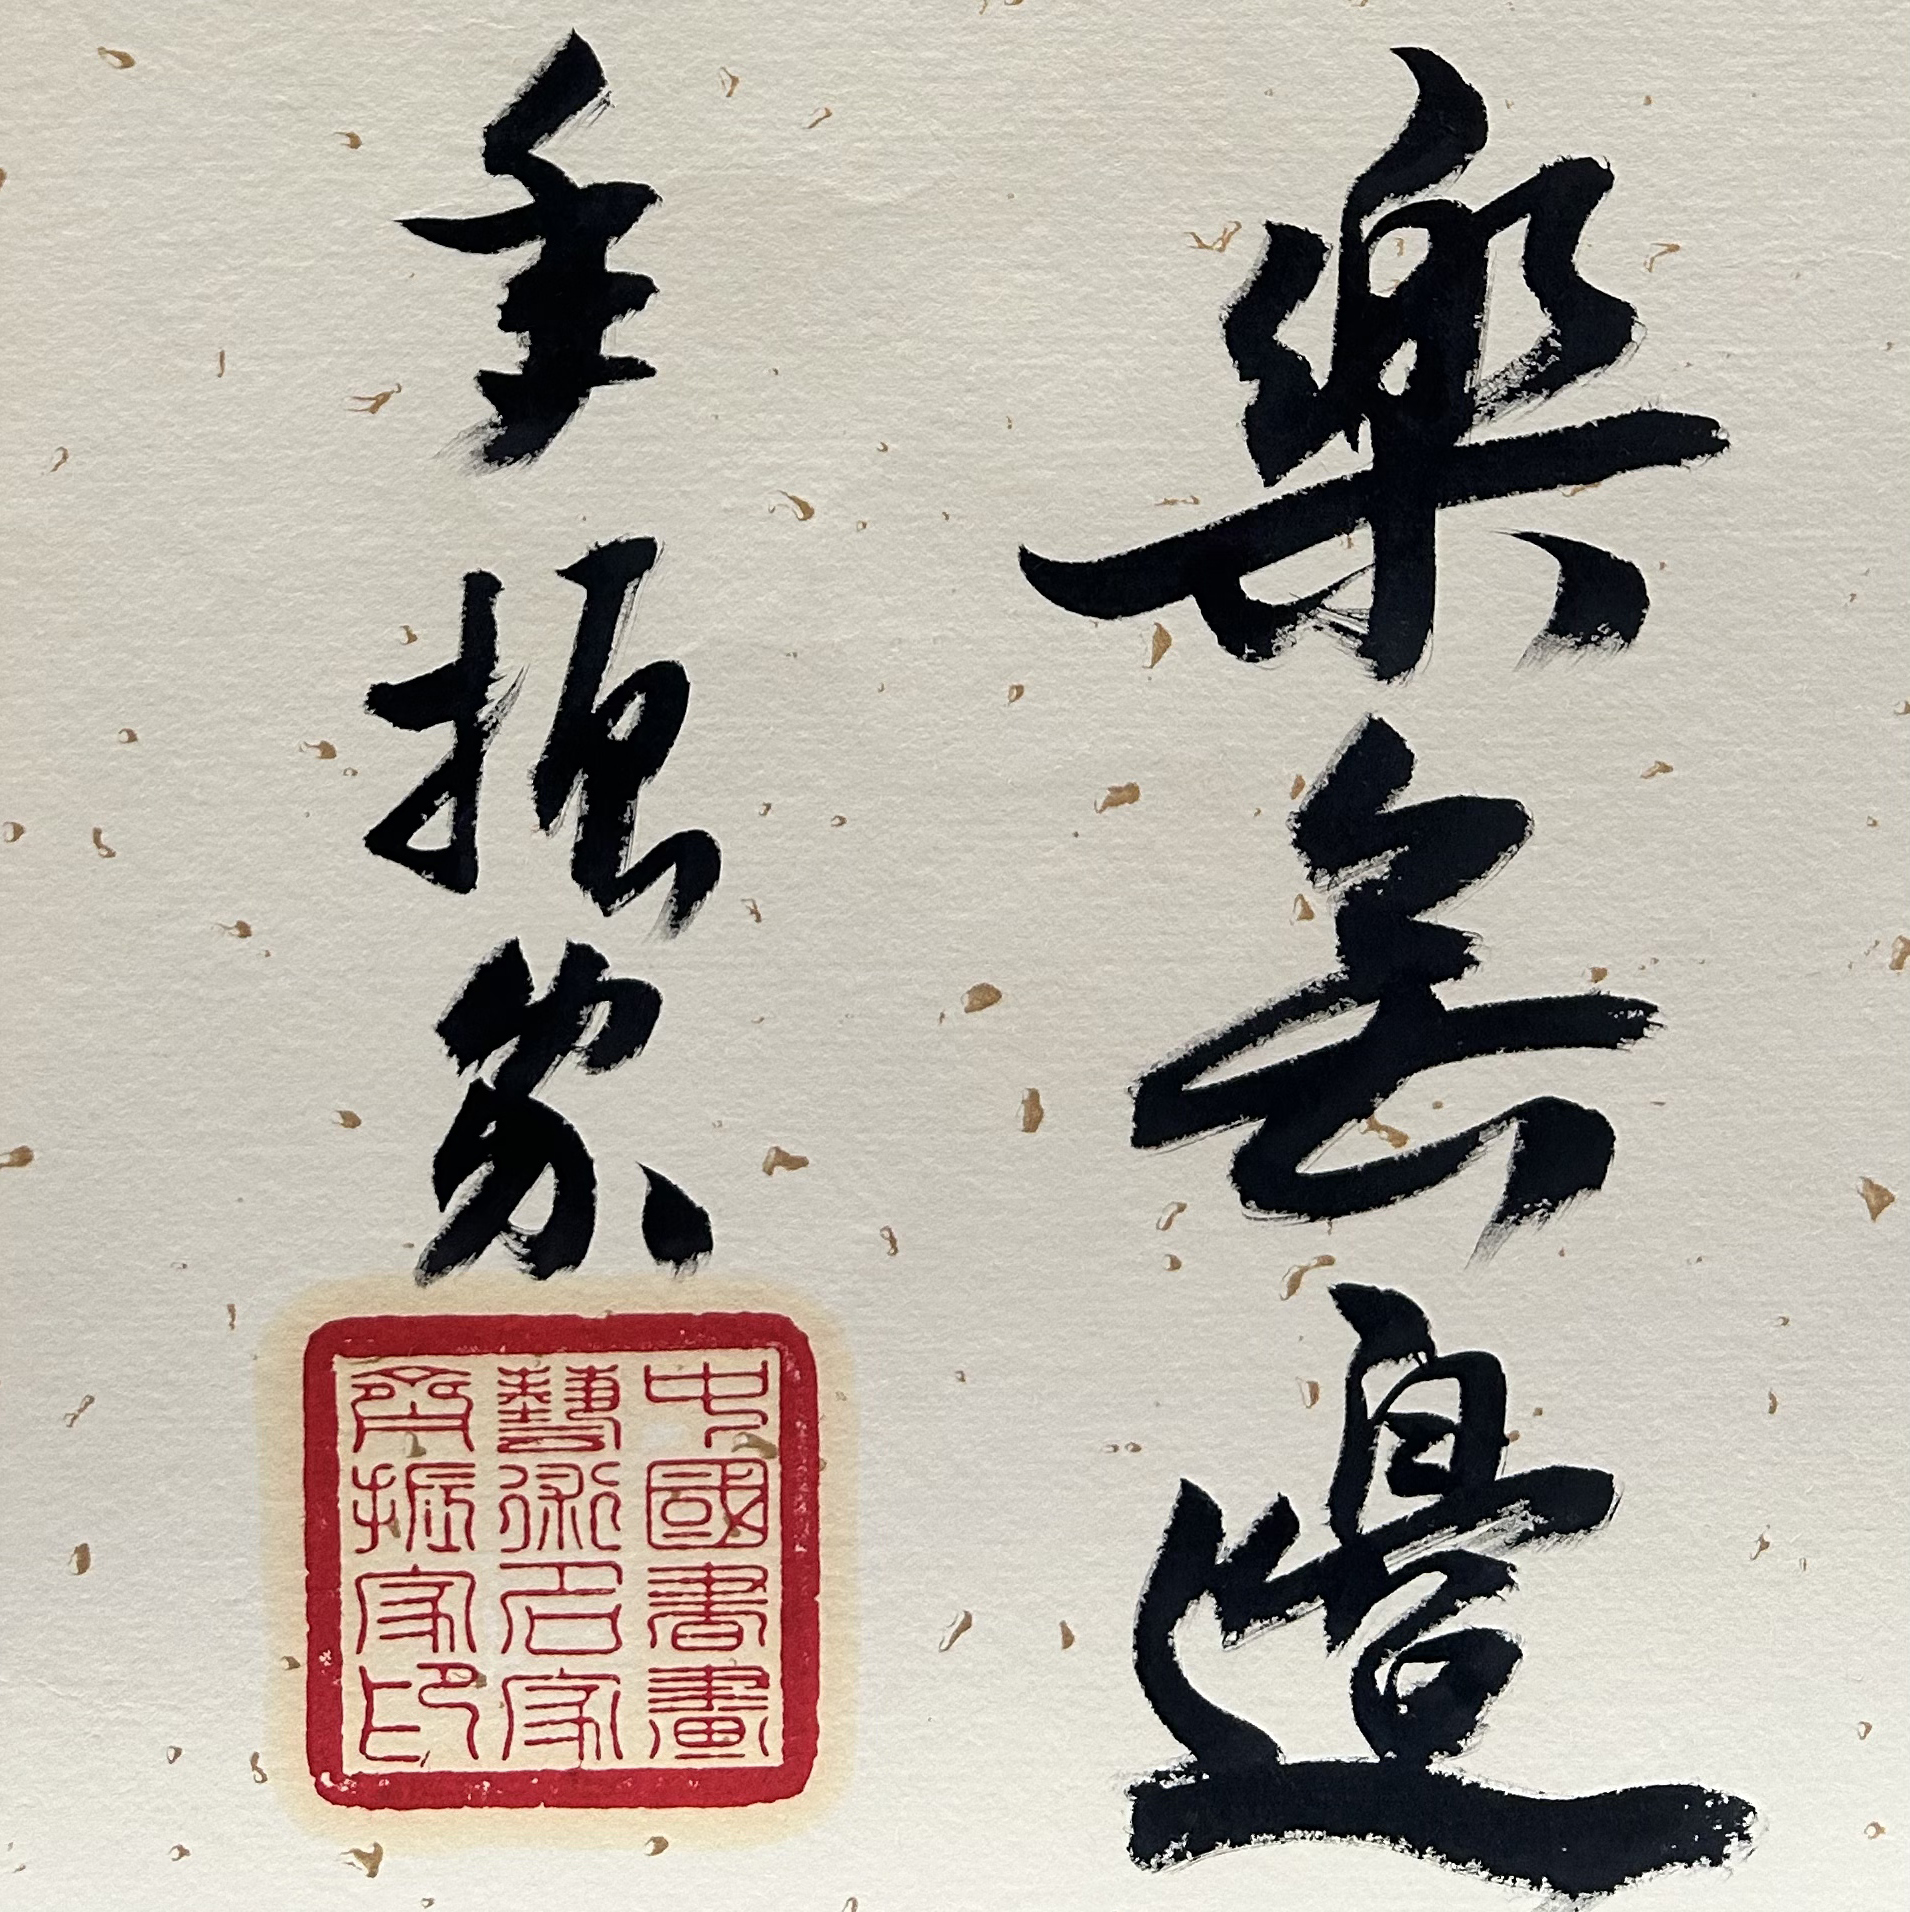 樂無邊
年振家
中國書畫
藝術名家
齊振家印